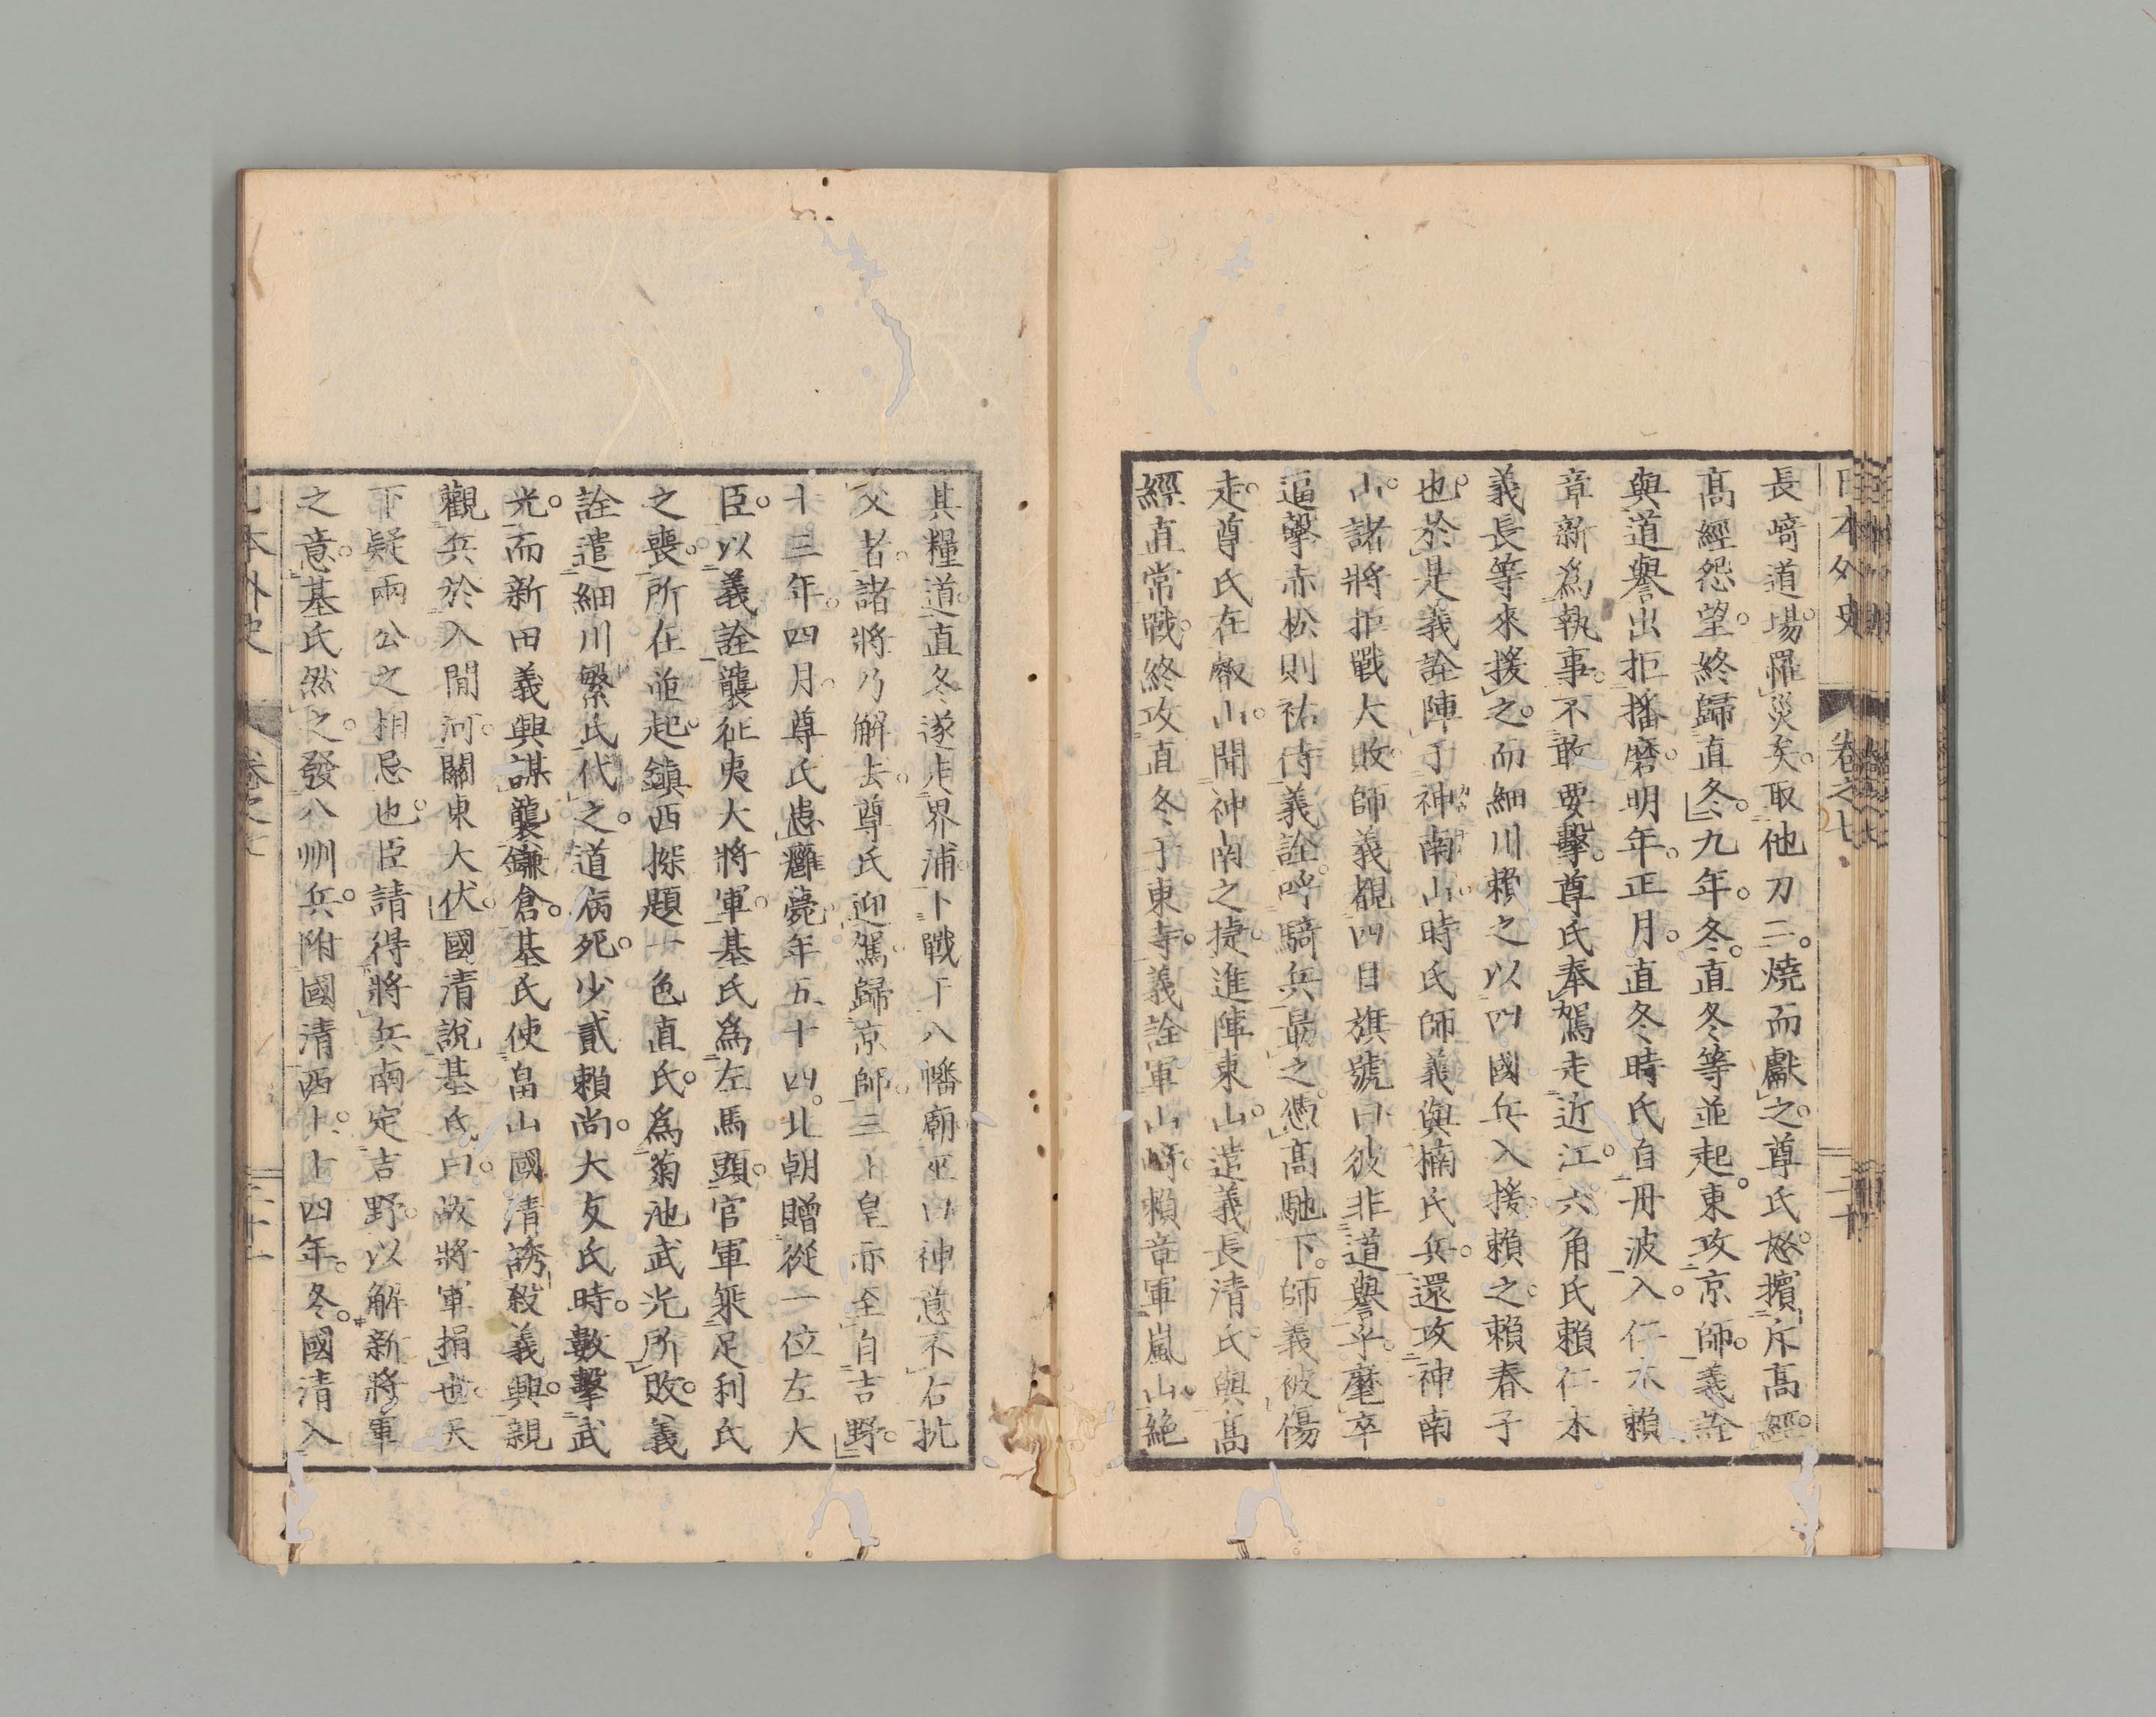 日本外史 卷之七 二十
長﨑道場罹災矣。取他刀二。燒而獻之。尊氏怒擯斥高經。
高經怨望。終歸直冬。九年。冬。直冬等並起。東攻京師。義詮
與道譽出拒播磨。明年。正月。直冬時氏自丹波入。仁木賴
章新爲執事。不敢要擊。尊氏奉駕走近江。六角氏賴仁木
義長等來援之。而細川賴之以四國兵入援。賴之。賴春子
也。於是義詮陣于神南山。時氏師義與楠氏兵。還攻神南
山。諸將拒戰大敗。師義覩四目旗號曰彼非道譽乎。麾卒
逼擊赤松則祐侍義詮。呼騎兵勗之。憑高馳下。師義被傷
走。尊氏在叡山。聞神南之捷。進陣東山。遣義長清氏與高
經直常戰。終攻直冬于東寺。義詮軍山﨑。賴章軍嵐山。絶
其糧道。直冬遂走界浦。卜戰于八幡廟巫曰神意不右抗
父者。諸將乃解去。尊氏迎駕歸京師。三上皇亦至自吉野。
十三年。四月。尊氏患癰薨。年五十四。北朝贈從一位左大
臣。以義詮襲征夷大將軍。基氏爲左馬頭。官軍乘足利氏
之喪。所在並起。鎮西探題一色直氏。爲菊池武光所敗。義
詮遣細川繁氏代之。道病死。少貳賴尚。大友氏時。數擊武
光。而新田義興謀襲鎌倉。基氏使畠山國清誘殺義興。親
觀兵於入間河。關東大伏。國清說基氏曰。故將軍捐世。天
下疑兩公之相忌也。臣請得將兵南定吉野。以解新將軍
之意。基氏然之。發八州兵。附國清西上。十四年。冬。國清入
日本外史 卷之七 二十一